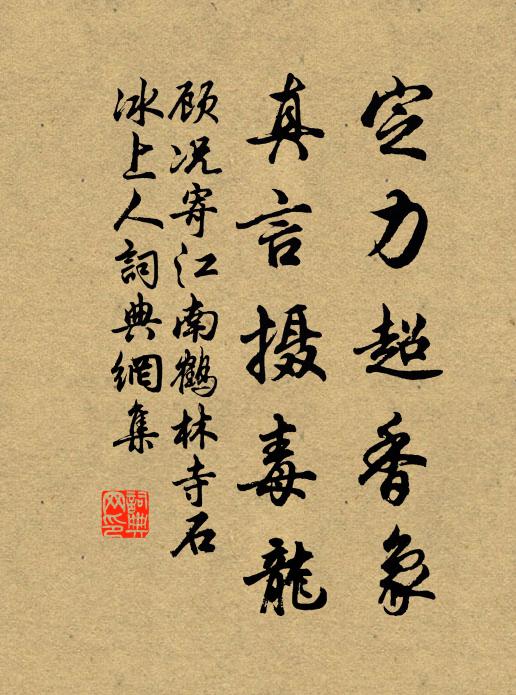 定力超香象
真言摄毒龍
顾况寄江南鶴林寺石
冰上人詞典網集
詞典网印